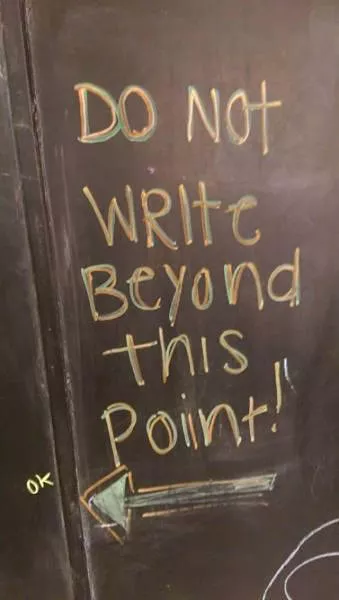 DO NOt
WRIte
Beyond
this
Point!
OK